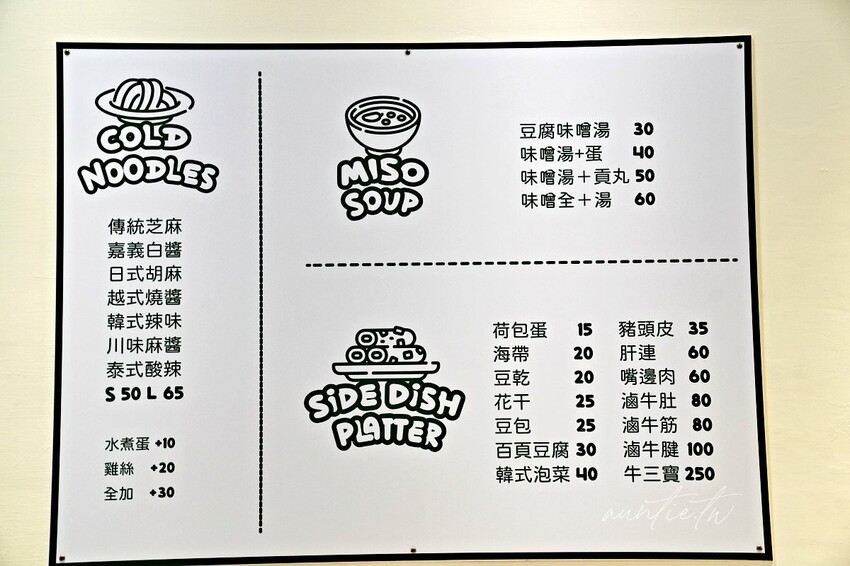 COLD
NOODLES
傳統芝麻
嘉義白醬
日式胡麻
越式燒醬
韓式辣味
川味麻醬
泰式酸辣
S 50 L 65
水煮蛋 +10
雞絲 +20
全加 +30
MISO
SOUP
豆腐味噌湯 30
味噌湯+蛋 40
味噌湯+貢丸 50
味噌全+湯 60
SIDE DISH
PLATTER
荷包蛋 15
海帶 20
豆乾 20
花干 25
豆包 25
百頁豆腐 30
韓式泡菜 40
豬頭皮 35
肝連 60
嘴邊肉 60
滷牛肚 80
滷牛筋 80
滷牛腱 100
牛三寶 250
auntie.tw